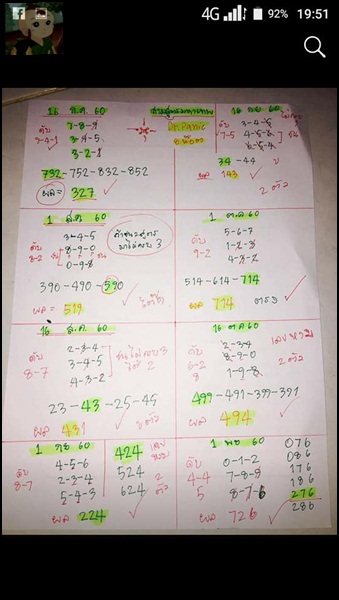 4G 92% 19:51
16 ก.ค. 60
7-8-9
3-4-5
3-2-1
ดับ
7-4-1
732-752-832-852
ผล = 327
16 ก.ย. 60
ดับ
7-5
3-4-5
34-44
ผล 143
2 ตัว
1 ส.ค 60
3-4-5
8-9-0
0-9-8
ดับ
8-2
390-490-590
ผล = 519
1 ต.ค 60
5-6-7
1-2-3
4-3-2
ดับ
9-2
514-614-714
ผล 714 ตรง
16 ส.ค. 60
2-3-4
3-4-5
4-3-2
ดับ
8-7
23-43-25-45
ผล 431
16 ต.ค 60
2-3-4
8-9-0
1-9-8
ดับ
6-2
8
2 ตัว
499-491-399-391
ผล 494
1 ก.ย 60
4-5-6
2-3-4
5-4-3
ดับ
8-7
424
524
624
2
ตัว
ผล 224
1 พ.ย 60
0-1-2
7-8-9
8-7-6
ดับ
4-4
5
076
086
176
186
276
286
ผล 726